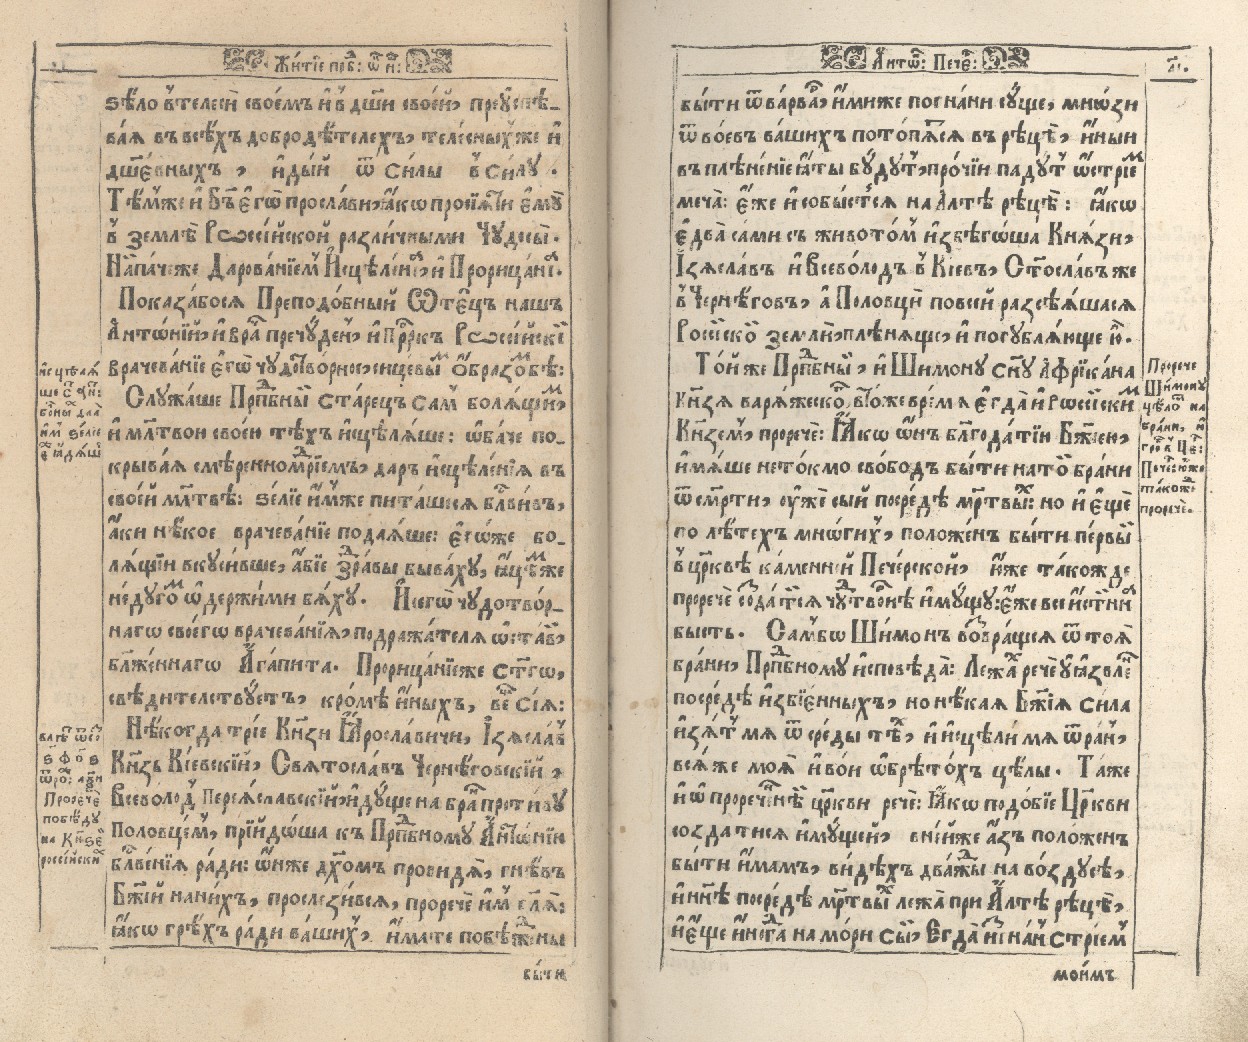 Житїе прⷣб: ѿц҃:
ѕѣло въ телесѣ своемъ и в дш҃и своей, преуспѣ_
вая въ всѣхъ добродѣтелехъ, телесныхъ же и
дш҃евныхъ, идый ѿ силы в силу.
Тѣмже и Бг҃ъ єгѡ прослави, ꙗкѡ просїяти єму
в землѣ Рѡссїйской различными Чудесы.
Напаче же Дарованїемъ Исцѣленїѧ, и Прорицанїѧ.
Показабося Преподобный Ѿтецъ нашъ
Антѡнїй, и врачъ пречуденъ, и Прⷪ҇ркъ Рѡссїйскїй
врачеванїе єгѡ чудотворное, сицевымъ Образомъ бѣ:
Служаше Прпⷣбный старецъ самъ болящимъ,
и млт҃вои своеи тѣхъ исцѣляше: ѡбаче по_
крывая смѣренномⷣрїемъ, даръ исцѣленїя въ
своей млт҃вѣ: ѕелїе имже питашеся блг҃вивъ,
аки нѣкое врачеванїе подаяше: єгѡже бо_
лящїи вкусивше, абїе здравы бываху, ицѣмже
недугомъ ѡдержими бяху. И сегѡ чудотвор_
нагѡ своегѡ врачеванїя, подражателя ѡстави,
блаженнагѡ Агапита. Прорицанїе же ст҃гѡ,
свѣдителствуетъ, кромѣ иныхъ, вещь сїя:
Нѣкогда трїе Кн҃зи Ꙗрославичи, Ізяславъ
Кн҃зь Кїевскїй, Святославъ Чернѣговскїй,
Всеволод, Переяславскїй, идуще на брань противу
Половцемъ, прїидѡша къ Прпⷣбному Антѡнїю
блг҃венїя ради: ѡнже дх҃омъ провидя, гнѣвъ
Бж҃їй нанихъ, прослезивея, прорече им гл҃я:
ꙗкѡ грѣхъ ради вашихъ, имате побѣждены
быти
исцѣляя
ше
ѕелїе
Прорече
побѣду
на Кн҃зѣ
россїйски
Антѡ: Пече:
быти ѿ варваръ, имиже погнани суще, мнѡзи
ѿ воевъ вашихъ потопятся въ рѣцѣ, иныи
въ плѣненїе яты будутъ, прочїи падутъ ѡстрїемъ
меча: єже и собыстся на Алтѣ рѣцѣ: ꙗкѡ
єдва сами съ животомъ избѣгѡша Князи,
Ізяславъ и Всеволодъ в Кїевъ, Ст҃ославъ же
в Чернѣговъ, а Половци повсей разсѣяшася
Россїйской землѣ, плѣняще, и погубляюще ю.
Той же Прпⷣбный, и Шимону сн҃у Афрїкана
Кн҃зя варяжеского, втоже время єгда и Рѡссїйскимъ
Кн҃земъ, прорече: Ꙗкѡ ѡнъ блг҃одатїи Бж҃їеи,
имяше нетокмо свободъ быти на той брани
ѿ смрⷮти, уже сый посредѣ мрⷮтвыхъ: но и єще
по лѣтехъ мнѡгихъ, положенъ быти первый
в црⷦ҇вѣ каменнѣй Печерской, иже такожде
прорече создатися чудотворнѣ имущу: єже все истинно
бысть. Самъ бѡ Шимонъ возвращся ѿ тоя
брани, Прпⷣбному исповѣда: Лежахъ рече уязвленъ
посредѣ избїенныхъ, но нѣкая Бж҃їя сила
изятъ мя ѿ среды тѣхъ, и исцѣли мя ѿ ранъ,
вся же моя и вои ѡбрѣтохъ цѣлы. Таже
и ѡ прореченнѣй црⷦ҇ви рече: Ꙗкѡ подобїе Црⷦ҇ви
создатися имущей, внейже азъ положенъ
быти имамъ, видѣхъ дважды на воздусѣ,
и нн҃ѣ посредѣ мрⷮтвыхъ лежа при Алтѣ рѣцѣ,
и єще иногда на мори сый, Егда изгнанъ стрїемъ
моимъ
Прорече
Шимону
цѣлость на
брани, и
гробъ в Цр҃:
Печ: юже
такожде
прорече.